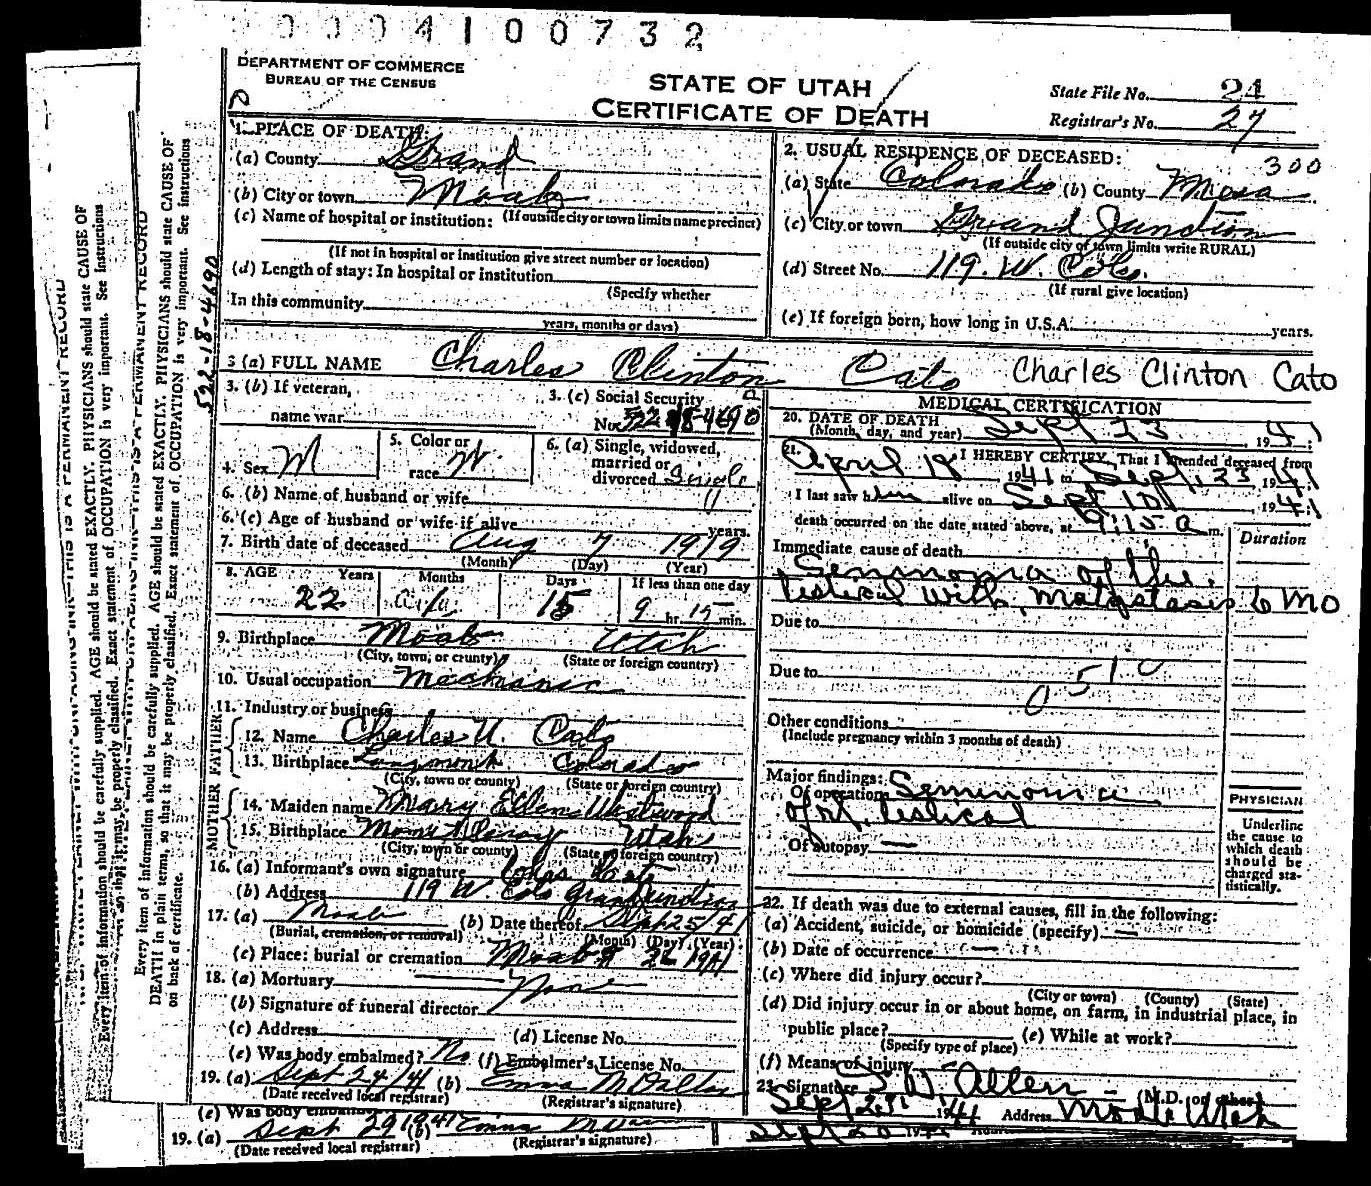 0004100732
DEPARTMENT OF COMMERCE
BUREAU OF THE CENSUS
STATE OF UTAH
CERTIFICATE OF DEATH
State File No. 24
Registrar's No. 27
1. PLACE OF DEATH:
(a) County Grand
(b) City or town Moab
(c) Name of hospital or institution: (If outside city or town limits name precinct)
(If not in hospital or institution give street number or location)
(d) Length of stay: In hospital or institution
(Specify whether
In this community
years, months or days)
2. USUAL RESIDENCE OF DECEASED:
300
(a) State Colorado (b) County Mesa
(c) City or town Grand Junction
(If outside city or town limits write RURAL)
(d) Street No. 119. W. Colo.
(If rural give location)
(e) If foreign born, how long in U.S.A. years.
3 (a) FULL NAME Charles Clinton Cato Charles Clinton Cato
3. (b) If veteran,
name war
3. (c) Social Security
No. 522-18-4690
4. Sex M
5. Color or
race W.
6. (a) Single, widowed,
married or
divorced Single
6. (b) Name of husband or wife
6. (c) Age of husband or wife if alive years.
7. Birth date of deceased Aug 7 1919
(Month) (Day) (Year)
8. AGE Years Months Days If less than one day
22 1 15 9 hr. 15 min.
9. Birthplace Moab Utah
(City, town, or county) (State or foreign country)
10. Usual occupation Mechanic
11. Industry or business
FATHER
12. Name Charles U. Cato
13. Birthplace Longmont Colorado
(City, town or county) (State or foreign country)
MOTHER
14. Maiden name Mary Ellen Westwood
15. Birthplace Utah
(City, town or county) (State or foreign country)
16. (a) Informant's own signature Chas Cato
(b) Address 119 W Colo Grand Junction
17. (a) Moab (b) Date thereof Sept 25/41
(Burial, cremation, or removal) (Month) (Day) (Year)
(c) Place: burial or cremation Moab 1941
18. (a) Mortuary None
(b) Signature of funeral director
(c) Address (d) License No.
(e) Was body embalmed? No (f) Embalmer's License No.
19. (a) Sept 24/41 (b) Emma
(Date received local registrar) (Registrar's signature)
MEDICAL CERTIFICATION
20. DATE OF DEATH
(Month, day, and year) Sept 23 1941
21. I HEREBY CERTIFY, That I attended deceased from
April 18 1941 to Sept, 23 1941
I last saw him alive on Sept 10 1941
death occurred on the date stated above, at 9:15 a m.
Immediate cause of death
Duration
Seminoma of the
testical with, Metastasis 6 Mo
Due to
Due to
0510
Other conditions
(Include pregnancy within 3 months of death)
Major findings:
Of operation Seminoma
of rt. testical
Of autopsy —
PHYSICIAN
Underline
the cause to
which death
should be
charged sta-
tistically.
22. If death was due to external causes, fill in the following:
(a) Accident, suicide, or homicide (specify) —
(b) Date of occurrence —
(c) Where did injury occur?
(City or town) (County) (State)
(d) Did injury occur in or about home, on farm, in industrial place, in
public place? (e) While at work?
(Specify type of place)
(f) Means of injury
23. Signature Allen (M.D. or other)
Sept 23, 1941 Address Moab Utah
(e) Was body embalmed
19. (a) Sept 29 1941 (b) Emma
(Date received local registrar) (Registrar's signature)
522-18-4690
Every item of information should be carefully supplied. AGE should be stated EXACTLY. PHYSICIANS should state CAUSE OF
DEATH in plain terms, so that it may be properly classified. Exact statement of OCCUPATION is very important. See instructions
on back of certificate.
THIS IS A PERMANENT RECORD
Every item of information should be carefully supplied. AGE should be stated EXACTLY. PHYSICIANS should state CAUSE OF